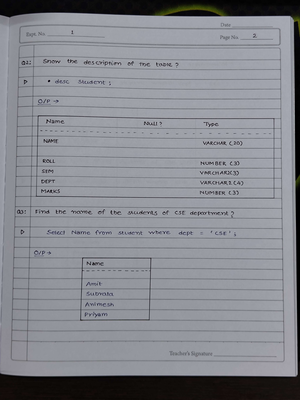 Date
Expt. No. 1
Page No. 2
Q2: Show the description of the table?
▷ • desc Student;
O/P →
Name Null? Type
NAME VARCHAR (20)
ROLL NUMBER (3)
SEM VARCHAR2(3)
DEPT VARCHAR2(4)
MARKS NUMBER (3)
Q3: Find the name of the students of CSE department?
▷ Select Name from student where dept = 'CSE';
O/P →
Name
Amit
Subrata
Animesh
Priyam
Teacher's Signature